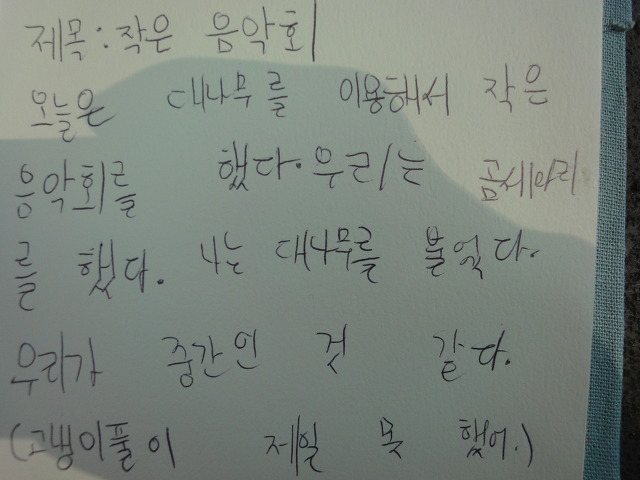 제목:작은 음악회
오늘은 대나무를 이용해서 작은
음악회를 했다. 우리는 곰세마리
를 했다. 나는 대나무를 불엇다.
우리가 중간인 것 같다.
(고냉이풀이 제일 못 했어.)